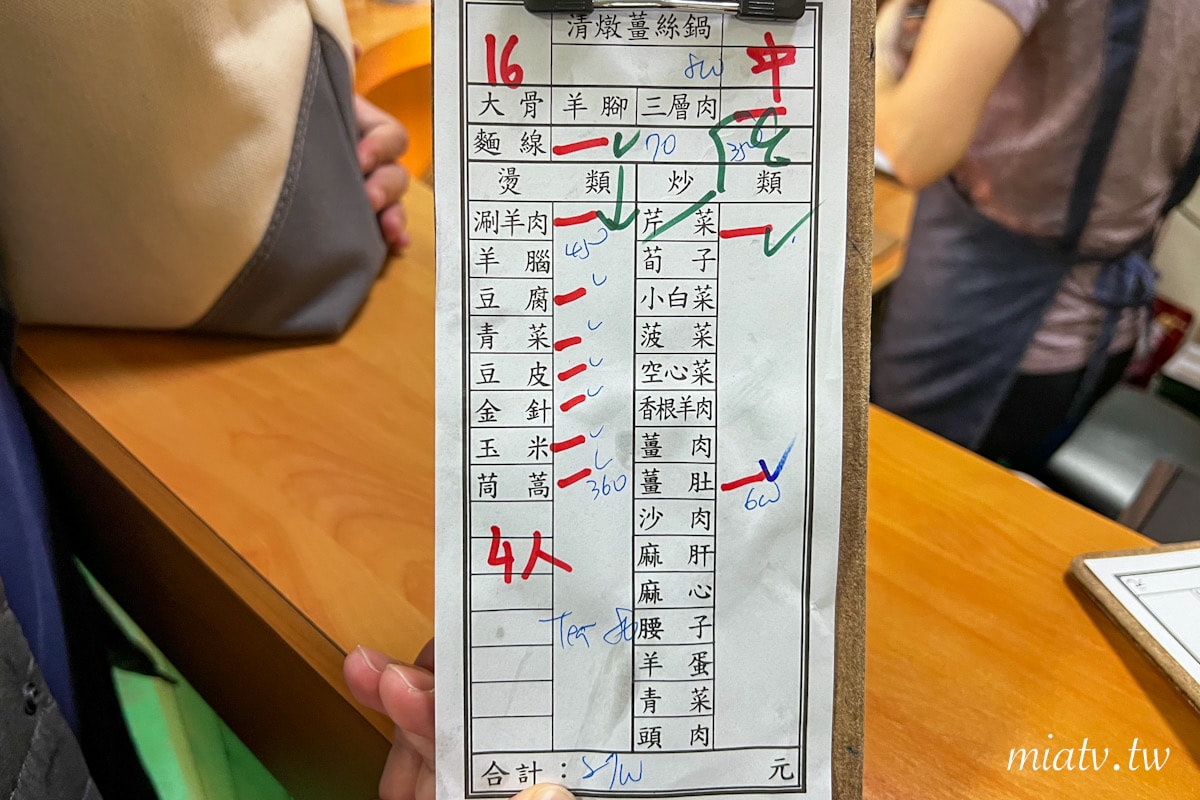 清燉薑絲鍋
16
中
大骨 羊腳 三層肉
麵線 70 350
燙類 炒類
涮羊肉 450 芹菜
羊腦 荀子
豆腐 小白菜
青菜 菠菜
豆皮 空心菜
金針 香根羊肉
玉米 薑肉
茼蒿 360 薑肚
沙肉
4人 麻肝
麻心
Tea 腰子
羊蛋
青菜
頭肉
合計： 元
miatv.tw